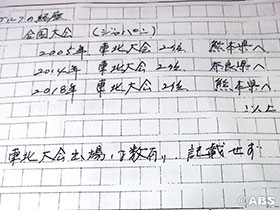 ゴルフの経歴
全国大会 (シッハロン)
2005年 東北大会2位 熊本県へ
2014年 東北大会2位 奈良県へ
2018年 東北大会2位 熊本県へ
以上
東北大会出場,多数有,,記載せず
© ABS